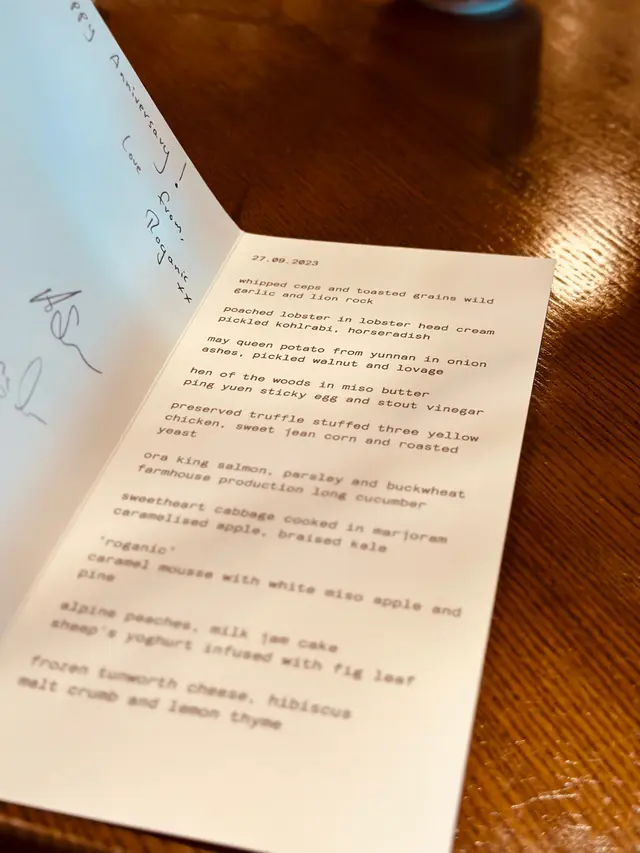 Anniversary!
Love from,
Roganic xx
27.09.2023
whipped ceps and toasted grains wild
garlic and lion rock
poached lobster in lobster head cream
pickled kohlrabi, horseradish
may queen potato from yunnan in onion
ashes, pickled walnut and lovage
hen of the woods in miso butter
ping yuen sticky egg and stout vinegar
preserved truffle stuffed three yellow
chicken, sweet jean corn and roasted
yeast
ora king salmon, parsley and buckwheat
farmhouse production long cucumber
sweetheart cabbage cooked in marjoram
caramelised apple, braised kale
'roganic'
caramel mousse with white miso apple and
pine
alpine peaches, milk jam cake
sheep's yoghurt infused with fig leaf
frozen tunworth cheese, hibiscus
malt crumb and lemon thyme